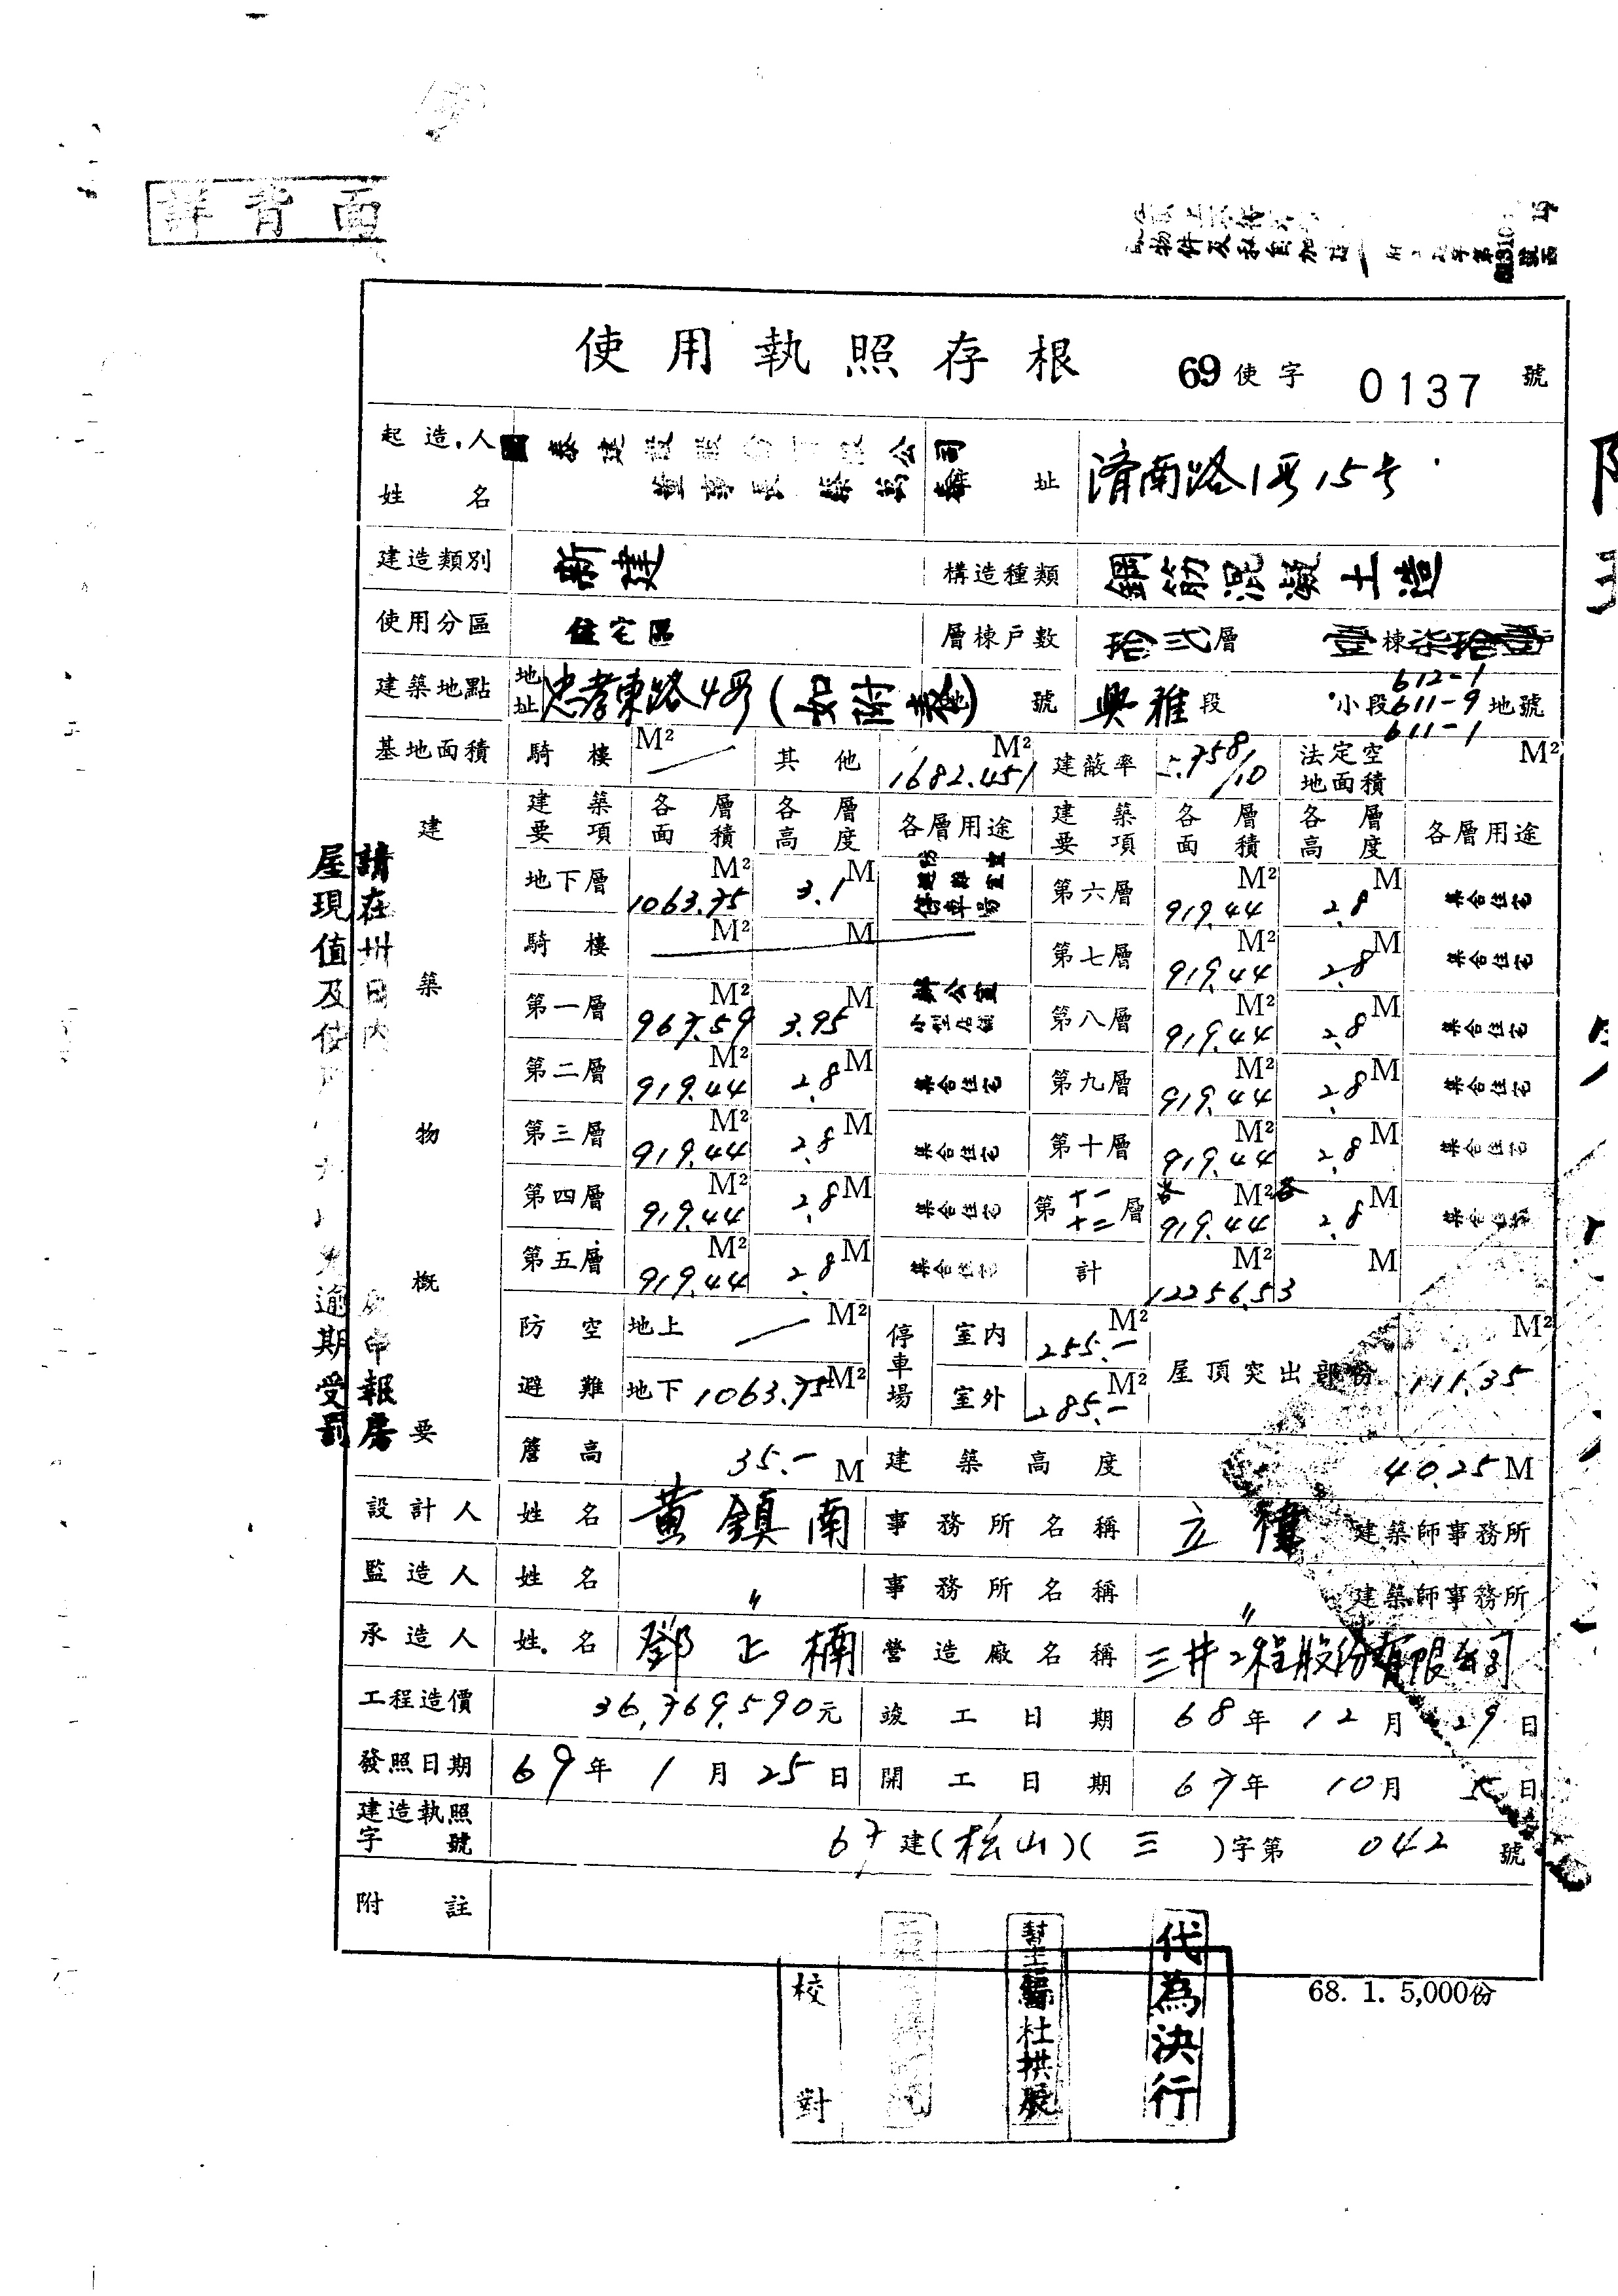 詳背面
使用執照存根 69使字 0137 號
起造人姓名 泰建設股份有限公司 董事長 蔡萬 住址 濟南路1段15号
建造類別 新建 構造種類 鋼筋混凝土造
使用分區 住宅區 層棟戶數 拾弍層 壹棟柒拾壹戶
建築地點 地址 忠孝東路4段 地號 興雅段 小段 612-1 611-9 611-1 地號
基地面積 騎樓 M² 其他 1682.451 M² 建蔽率 5.758/10 法定空地面積 M²
建築物概要
建築要項 各層面積 各層高度 各層用途 建築要項 各層面積 各層高度 各層用途
地下層 1063.75 M² 3.1 M 停車場 第六層 919.44 M² 2.8 M 集合住宅
騎樓 M² M 第七層 919.44 M² 2.8 M 集合住宅
第一層 967.59 M² 3.95 M 辦公室 第八層 919.44 M² 2.8 M 集合住宅
第二層 919.44 M² 2.8 M 集合住宅 第九層 919.44 M² 2.8 M 集合住宅
第三層 919.44 M² 2.8 M 集合住宅 第十層 919.44 M² 2.8 M 集合住宅
第四層 919.44 M² 2.8 M 集合住宅 第十一十二層 各 919.44 M² 各 2.8 M 集合住宅
第五層 919.44 M² 2.8 M 集合住宅 計 12256.53 M² M
防空避難 地上 M² 停車場 室內 255.- M² 屋頂突出部份 111.35 M²
地下 1063.75 M² 室外 285.- M²
簷高 35.- M 建築高度 40.25 M
設計人 姓名 黃鎮南 事務所名稱 立 建築師事務所
監造人 姓名 〃 事務所名稱 〃 建築師事務所
承造人 姓名 鄧正楠 營造廠名稱 三井工程股份有限公司
工程造價 36,769,590元 竣工日期 68年12月29日
發照日期 69年1月25日 開工日期 67年10月5日
建造執照字號 67建(松山)(三)字第 042 號
附註
請在卅日內 申報房
屋現值及使 逾期受罰
校對
代為決行
68. 1. 5,000份